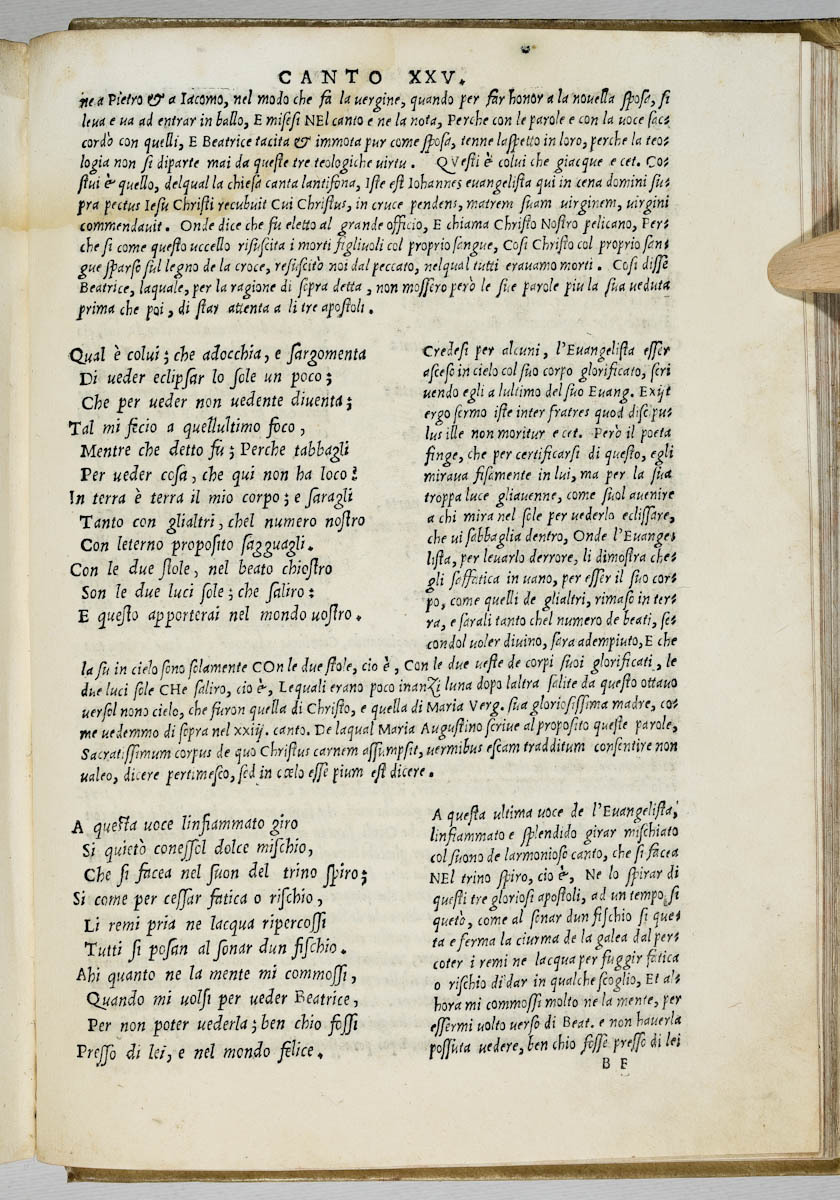 CANTO XXV.
ne a Pietro & a Iacomo, nel modo che fa la vergine, quando per far honor a la novella sposa, si
leua e ua ad entrar in ballo, E misesi NEl canto e ne la nota, Perche con le parole e con la uoce sac-
cordò con quelli, E Beatrice tacita & immota pur come sposa, tenne laspetto in loro, perche la teo-
logia non si diparte mai da queste tre teologiche uirtu. QVesti è colui che giacque e cet. Co-
stui è quello, delqual la chiesa canta lantifona, Iste est Iohannes euangelista qui in cena domini su-
pra pectus Iesu Christi recubuit Cui Christus, in cruce pendens, matrem suam uirginem, uirgini
commendauit. Onde dice che fu eletto al grande officio, E chiama Christo Nostro pelicano, Per-
che si come questo uccello risuscita i morti figliuoli col proprio sangue, Cosi Christo col proprio san-
gue sparso sul legno de la croce, resuscitò noi dal peccato, nelqual tutti erauamo morti. Cosi disse
Beatrice, laquale, per la ragione di sopra detta, non mossero però le sue parole piu la sua ueduta
prima che poi, di star attenta a li tre apostoli.
Qual è colui; che adocchia, e sargomenta
Di ueder eclipsar lo sole un poco;
Che per ueder non uedente diuenta;
Tal mi fecio a quellultimo foco,
Mentre che detto fu; Perche tabbagli
Per ueder cosa, che qui non ha loco?
In terra è terra il mio corpo; e saragli
Tanto con glialtri, chel numero nostro
Con leterno proposito sagguagli.
Con le due stole, nel beato chiostro
Son le due luci sole; che saliro:
E questo apporterai nel mondo uostro.
Credesi per alcuni, l'Euangelista esser
asceso in cielo col suo corpo glorificato, scri
uendo egli a lultimo del suo Euang. Exijt
ergo sermo iste inter fratres quod discipu-
lus ille non moritur e cet. Però il poeta
finge, che per certificarsi di questo, egli
miraua fisamente in lui, ma per la sua
troppa luce gliauenne, come suol auenire
a chi mira nel sole per uederlo eclissare,
che ui sabbaglia dentro, Onde l'Euange-
lista, per leuarlo derrore, li dimostra che-
gli saffatica in uano, per esser il suo cor-
po, come quelli de glialtri, rimaso in ter-
ra, e sarali tanto chel numero de beati, se-
condol uoler diuino, sara adempiuto, E che
la su in cielo sono solamente COn le due stole, cio è, Con le due ueste de corpi suoi glorificati, le
due luci sole CHe saliro, cio è, Lequali erano poco inanZi luna dopo laltra salite da questo ottauo
uersol nono cielo, che furon quella di Christo, e quella di Maria Verg. sua gloriosissima madre, co-
me uedemmo di sopra nel xxiij. canto. De laqual Maria Augustino scriue al proposito queste parole,
Sacratissimum corpus de quo Christus carnem assumpsit, uermibus escam tradditum consentire non
ualeo, dicere pertimesco, sed in cœlo esse pium est dicere.
A questa uoce linfiammato giro
Si quietò conessol dolce mischio,
Che si facea nel suon del trino spiro;
Si come per cessar fatica o rischio,
Li remi pria ne lacqua ripercossi
Tutti si posan al sonar dun fischio.
Ahi quanto ne la mente mi commossi,
Quando mi uolsi per ueder Beatrice,
Per non poter uederla; ben chio fossi
Presso di lei, e nel mondo felice.
A questa ultima uoce de l'Euangelista,
linfiammato e splendido girar mischiato
col suono de larmonioso canto, che si facea
NEl trino spiro, cio è, Ne lo spirar di
questi tre gloriosi apostoli, ad un tempo si
quetò, come al sonar dun fischio si que-
ta e ferma la ciurma de la galea dal per-
coter i remi ne lacqua per fuggir fatica
o rischio di dar in qualche scoglio, Et al-
hora mi commossi molto ne la mente, per
essermi uolto uerso di Beat. e non hauerla
possuta uedere, ben chio fosse presso di lei
B F